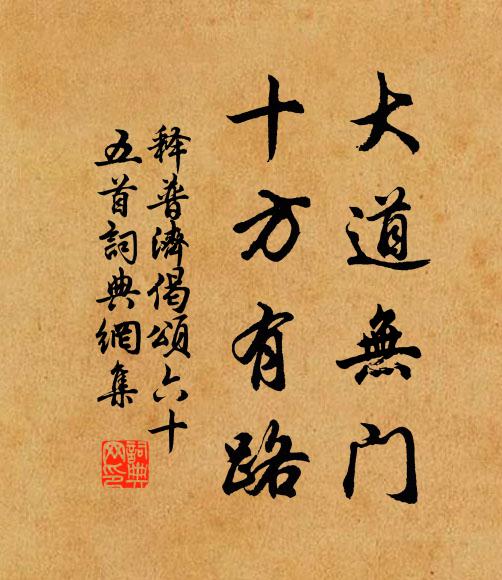 大道無門
十方有路
释普濟偈頌六十
五首詞典網集
詞典
网印